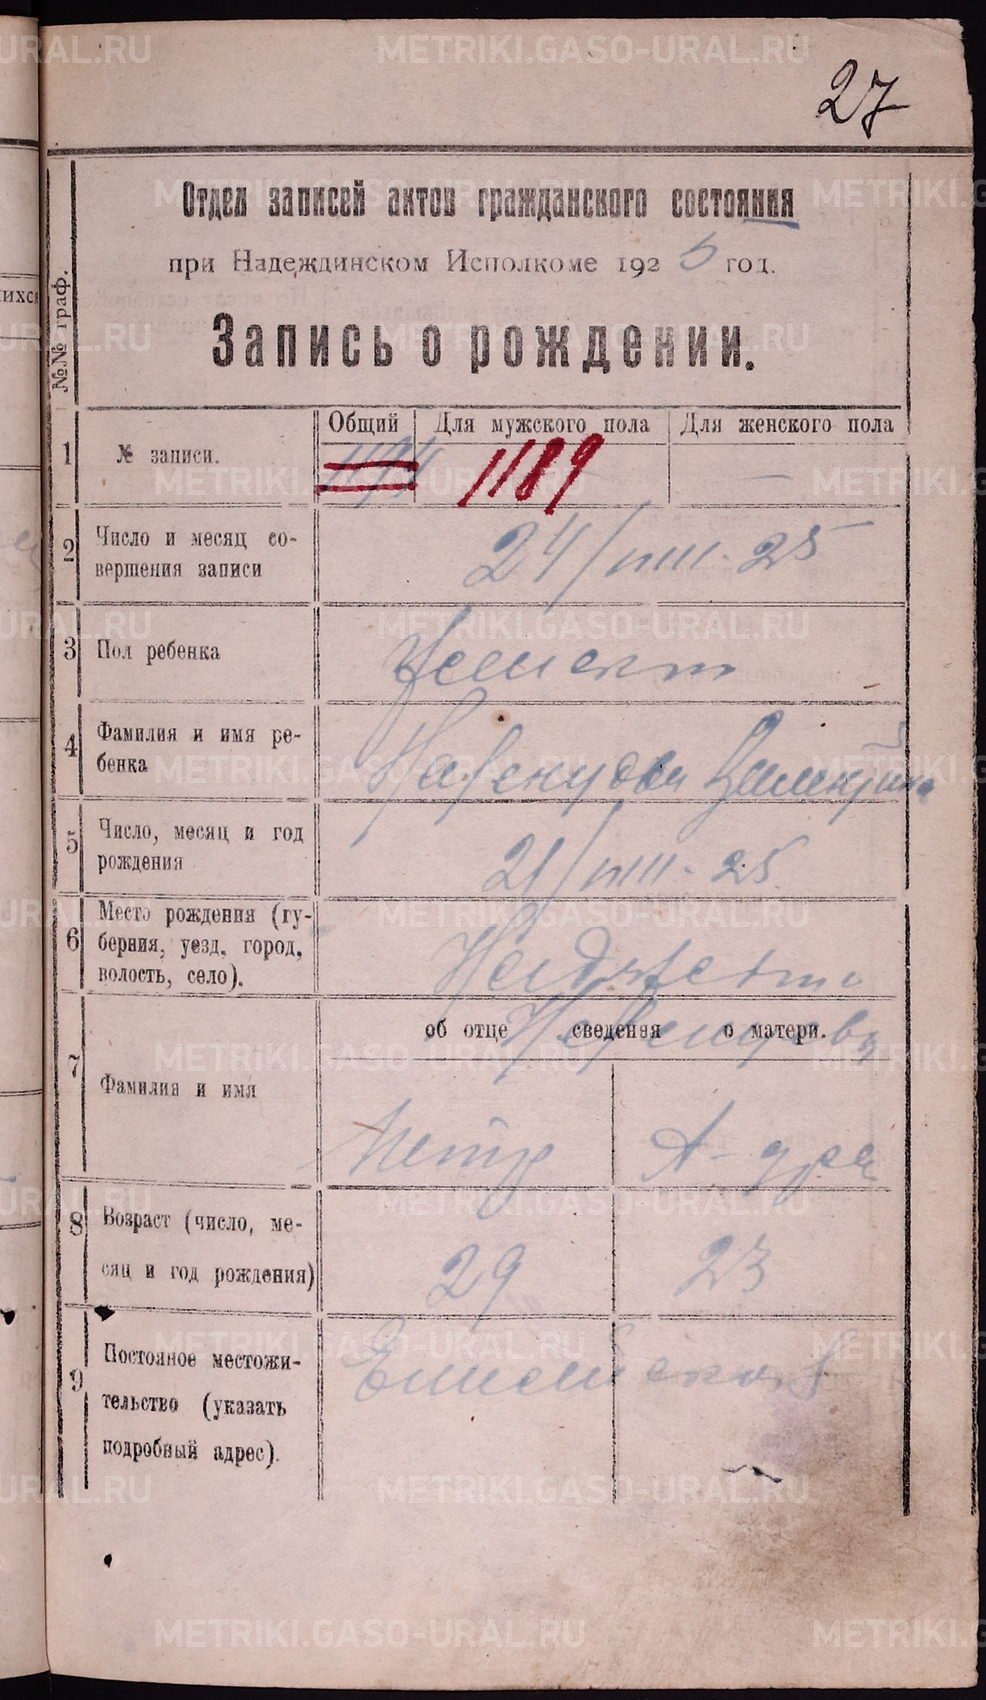 27
Отдел записей актов гражданского состояния
при Надеждинском Исполкоме 1925 год.
Запись о рождении.
№№ граф.
Общий Для мужского пола Для женского пола
1 № записи. 1194 1189 —
2 Число и месяц со-
вершения записи 24/VIII-25
3 Пол ребенка Женский
4 Фамилия и имя ре-
бенка Валентина
5 Число, месяц и год
рождения 21/VIII-25
6 Место рождения (гу-
берния, уезд, город,
волость, село).
об отце сведения о матери.
7 Фамилия и имя Петр
8 Возраст (число, ме-
сяц и год рождения) 29 23
9 Постояное местожи-
тельство (указать
подробный адрес).
METRIKI.GASO-URAL.RU